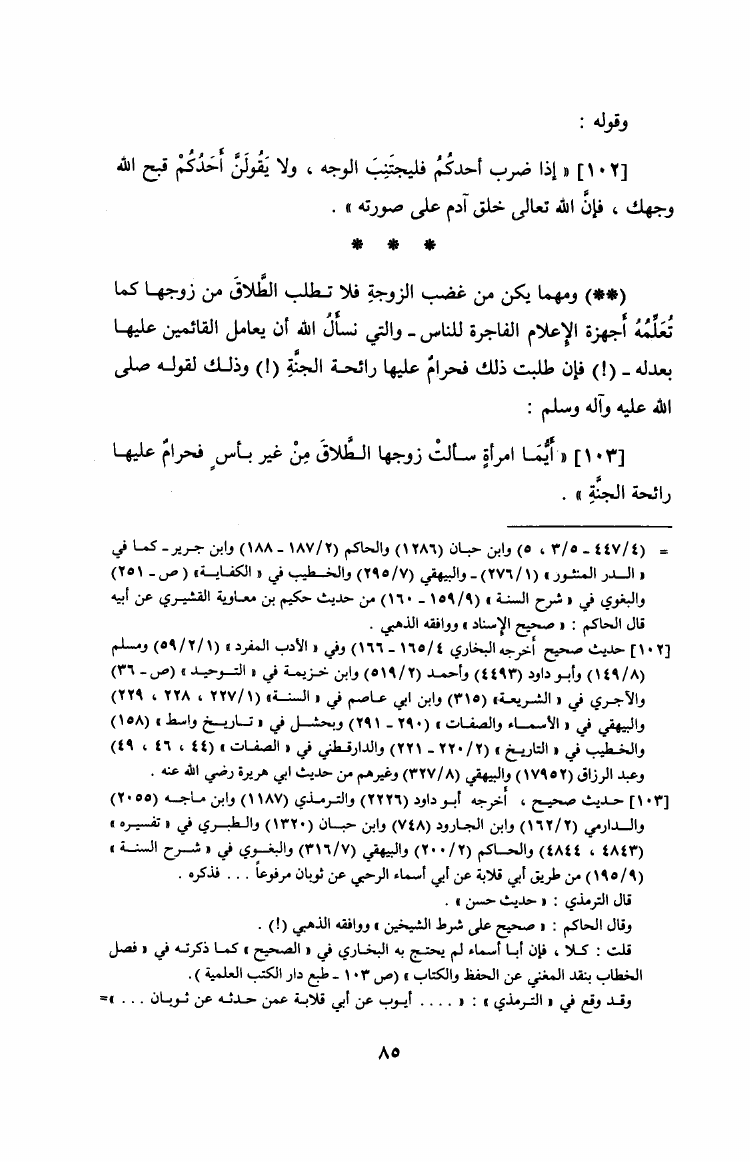 وقوله :
[١٠٢] « إذا ضرب أحدكُمُ فليجتَنِبَ الوجه ، ولا يَقُولَنَّ أَحَدُكُمْ قبح الله
وجهك ، فإنَّ الله تعالى خلق آدم على صورته » .
* * *
(**) ومهما يكن من غضب الزوجةِ فلا تـطلب الطَّلاقَ من زوجهـا كما
تُعَلِّمُهُ أجهزة الإعلام الفاجرة للناس ـ والتي نسأَلُ الله أن يعامل القائمين عليهـا
بعدله ـ (!) فإن طلبت ذلك فحرامٌ عليها رائحـة الجنَّةِ (!) وذلـك لقولـه صلى
الله عليه وآله وسلم :
[١٠٣] « أَيُّمَـا امرأةٍ سـألتْ زوجها الـطَّلاقَ مِنْ غير بـأس ٍ فحرامٌ عليهـا
رائحة الجنَّةِ » .
= (٤/٤٤٧ ـ ٣/٥ ، ٥) وابن حبـان (١٢٨٦) والحاكم (٢/١٨٧ ـ ١٨٨) وابن جـرير ـ كمـا في
« الـدر المنثور » (١/٢٧٦) ـ والبيهقي (٧/٢٩٥) والخـطيب في « الكفـايـة» (ص ـ ٢٥١)
والبغوي في « شرح السنـة » (٩/١٥٩ ـ ١٦٠) من حديث حكيم بن معـاوية القشيـري عن أبيه
قال الحاكم : « صحيح الإسناد » ووافقه الذهبي .
[١٠٢] حديث صحيح أخرجه البخاري ٤/١٦٥ ـ ١٦٦) وفي « الأدب المفرد » (٢/١/٥٩) ومسلم
(٨/١٤٩) وأبـو داود (٤٤٩٣) وأحمـد (٢/٥١٩) وابن خـزيمـة في « التـوحيـد » (ص ـ ٣٦)
والأجري في « الشريعـة» (٣١٥) وابن ابي عـاصم في « السنـة» (١/٢٢٧ ، ٢٢٨ ، ٢٢٩)
والبيهقي في « الأسمـاء والصفـات » (٢٩٠ ـ ٢٩١) وبحشـل في « تـاريـخ واسط » (١٥٨)
والخـطيب في « التاريخ » (٢/٢٢٠ ـ ٢٢١) والدارقـطني في « الصفـات » (٤٤ ، ٤٦ ، ٤٩)
وعبد الرزاق (١٧٩٥٢) والبيهقي (٨/٣٢٧) وغيرهم من حديث ابي هريرة رضي الله عنه .
[١٠٣] حـديث صحيـح ، أخرجه أبـو داود (٢٢٢٦) والتـرمـذي (١١٨٧) وابن مـاجـه (٢٠٥٥)
والـدارمي (٢/١٦٢) وابن الجـارود (٧٤٨) وابن حبـان (١٣٢٠) والـطبـري في « تفسيـره »
(٤٨٤٣ ، ٤٨٤٤) والحـاكم (٢/٢٠٠) والبيهقي (٧/٣١٦) والبغـوي في « شـرح السنـة »
(٩/١٩٥) من طريق أبي قلابة عن أبي أسماء الرحبي عن ثوبان مرفوعاً . . . فذكره .
قال الترمذي : « حديث حسن » .
وقال الحاكم : « صحيح على شرط الشيخين » ووافقه الذهبي (!) .
قلت : كـلا ، فإن أبـا أسماء لم يحتـج به البخـاري في « الصحيح » كمـا ذكرتـه في « فصل
الخطاب بنقد المغني عن الحفظ والكتاب » (ص ١٠٣ ـ طبع دار الكتب العلمية ).
وقـد وقع في « التـرمذي » : « . . . . أيـوب عن أبي قلابـة عمن حـدثـه عن ثـوبـان . . . »=
٨٥